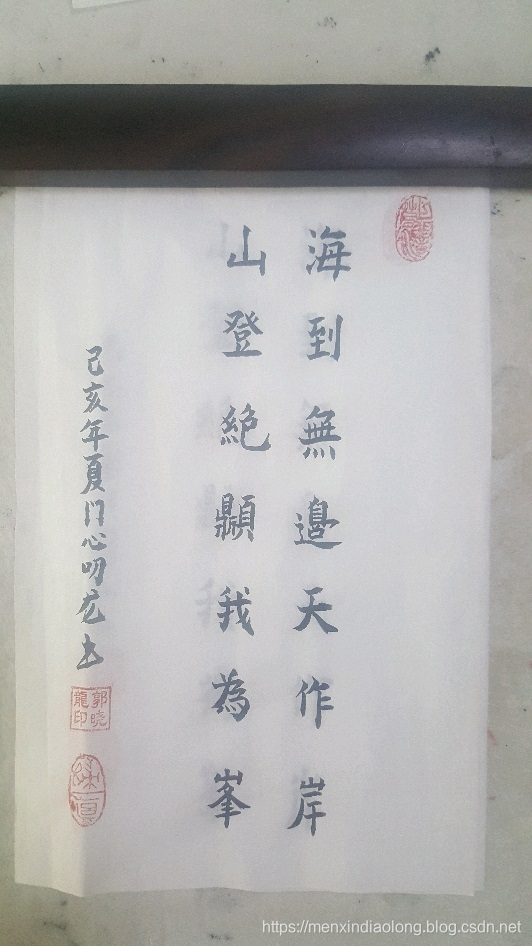 海到無邊天作岸
山登絶顛我為峯
己亥年夏门心叼龙书
郭晓龍印
https://menxindiaolong.blog.csdn.net